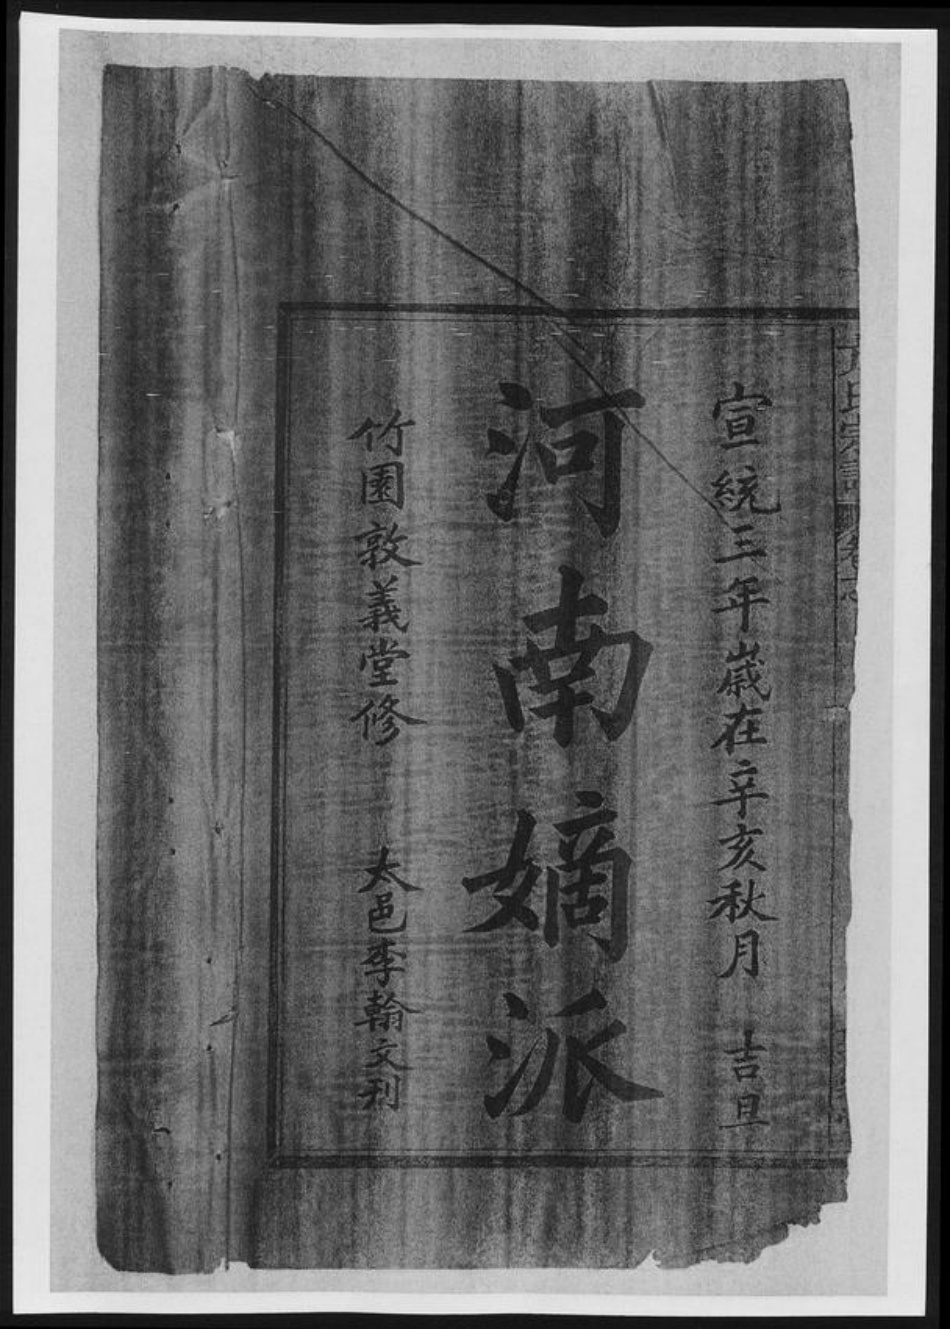 氏宗譜 卷之
宣統三年歲在辛亥秋月 吉旦
河南嫡派
竹園敦義堂修 太邑李翰文刊